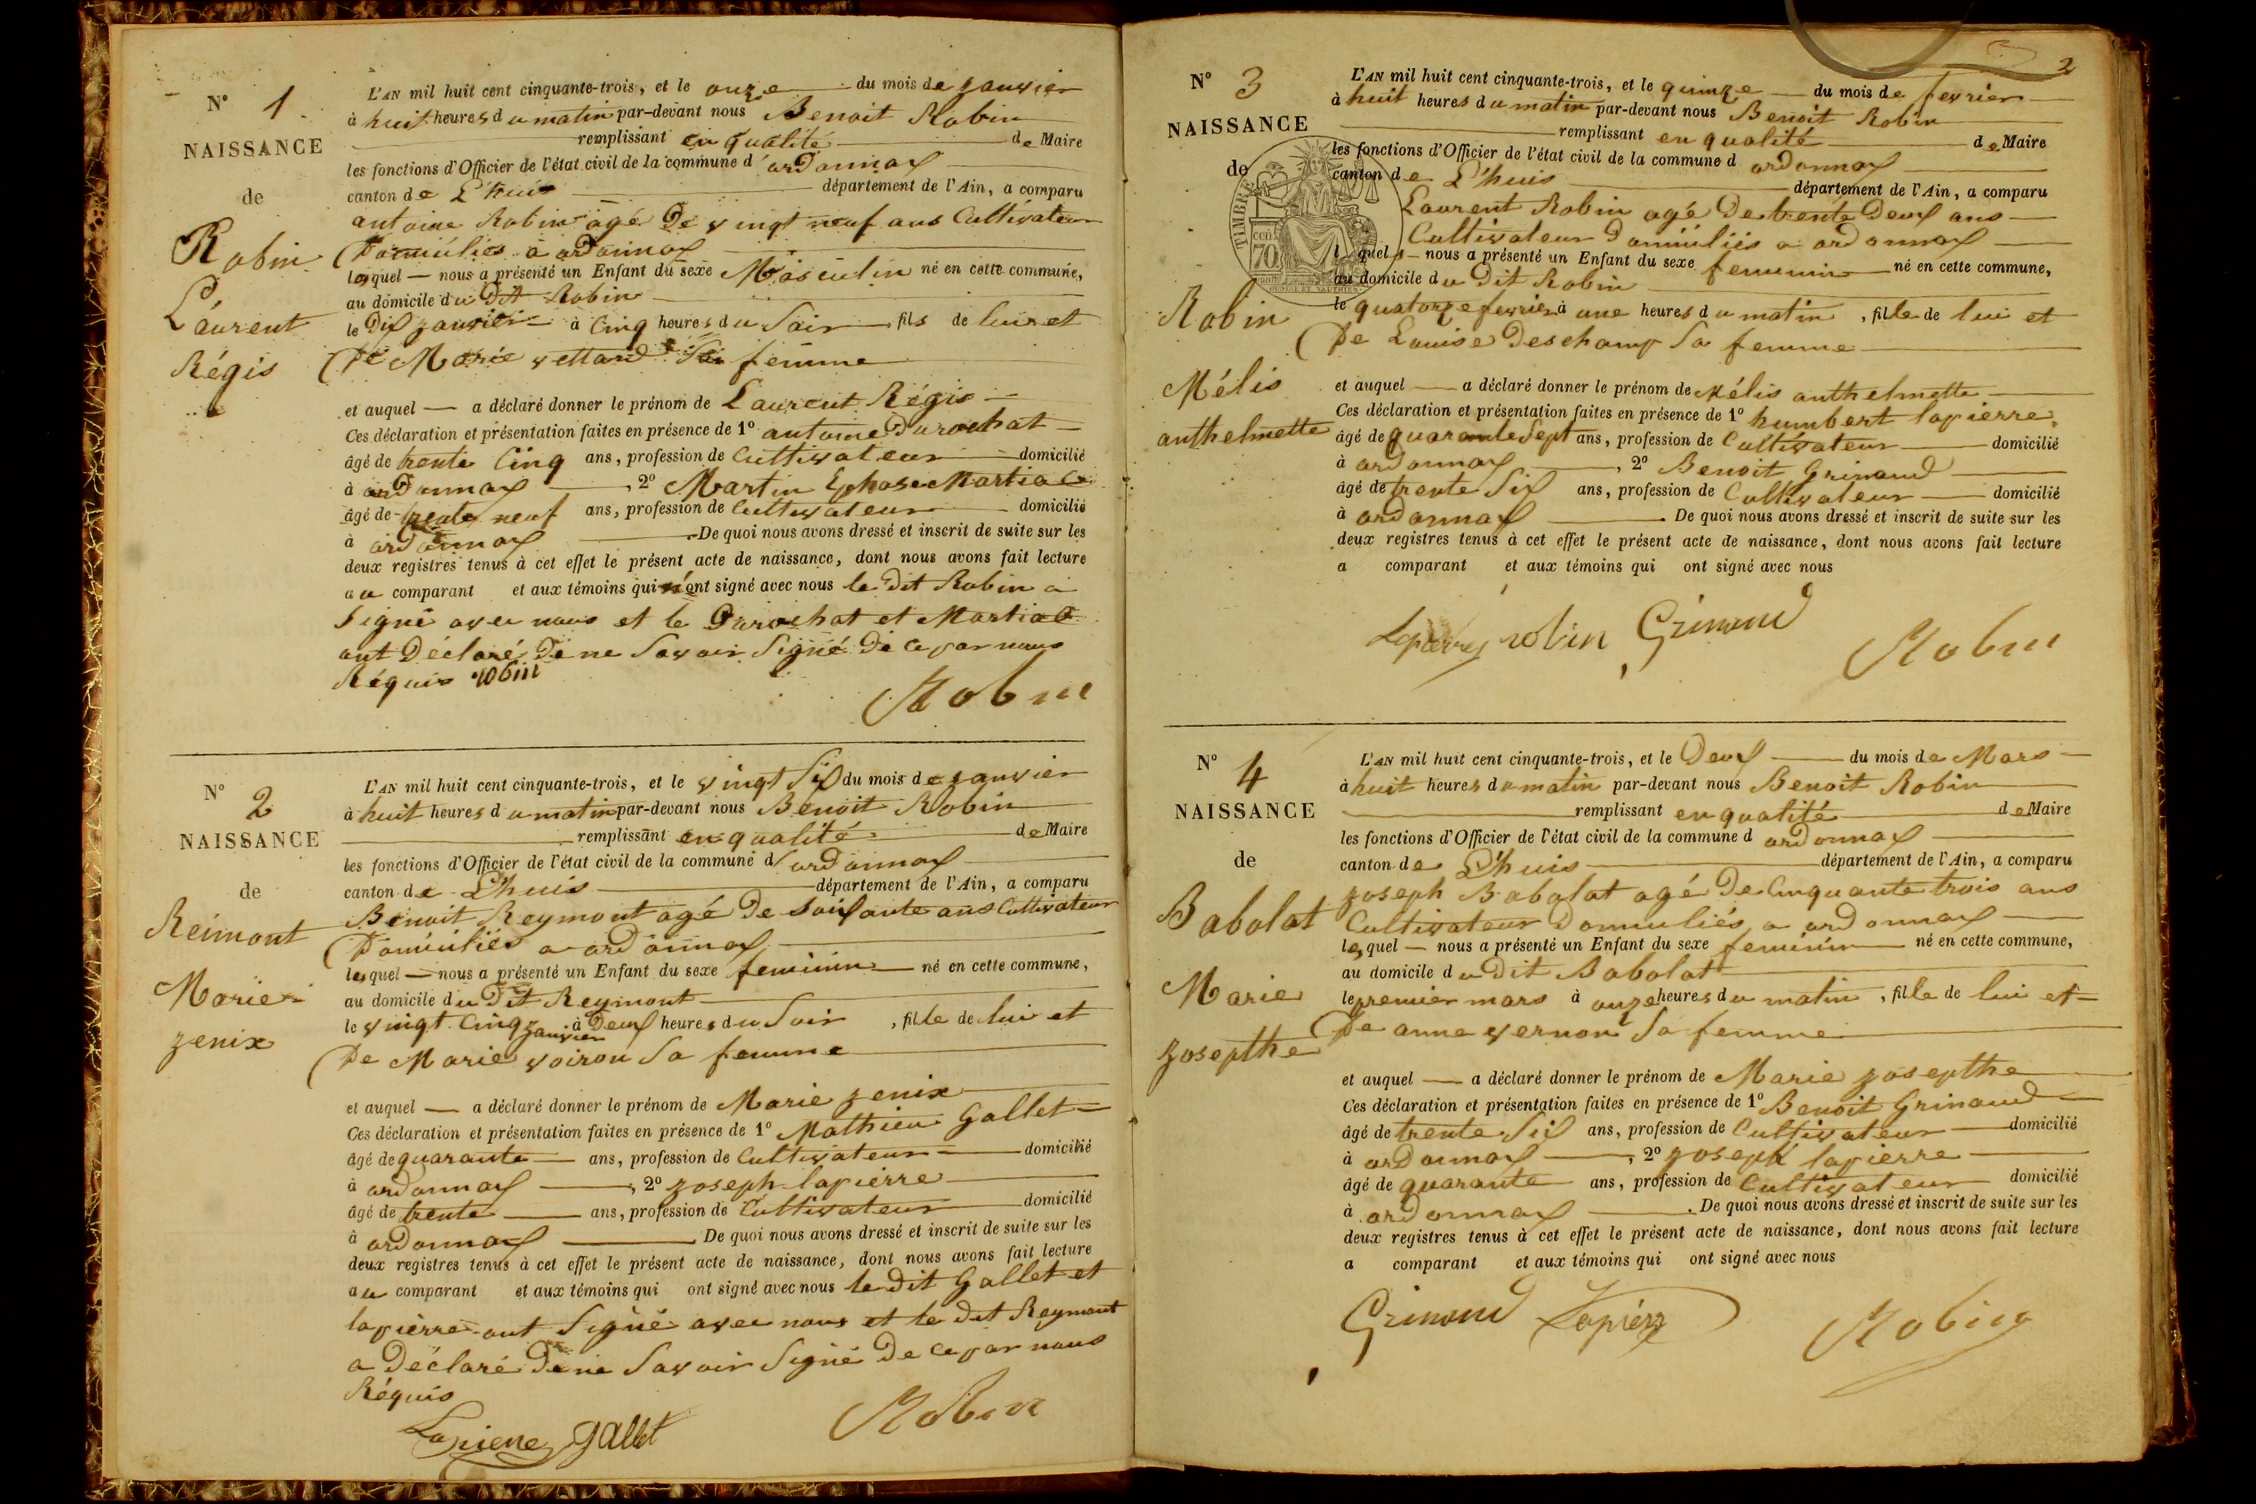 N° 1
NAISSANCE
de
Robin
Laurent
Régis
L'AN mil huit cent cinquante-trois, et le onze du mois de janvier
à huit heures du matin par-devant nous Benoit Robin
remplissant en qualité de Maire
les fonctions d'Officier de l'état civil de la commune d'ordonnax
canton de L'huis département de l'Ain, a comparu
antoine Robin agé De vingt neuf ans Cultivateur
Domiciliés a ordonnax
lequel nous a présenté un Enfant du sexe Masculin né en cette commune,
au domicile du Dit Robin
le Dix janvier à Cinq heures du Soir fils de lui et
De Marie vettard Sa femme
et auquel a déclaré donner le prénom de Laurent Régis
Ces déclaration et présentation faites en présence de 1° antoine Durochat
âgé de trente Cinq ans, profession de Cultivateur domicilié
à ordonnax, 2° Martin Martial
âgé de trente neuf ans, profession de Cultivateur domicilié
à ordonnax. De quoi nous avons dressé et inscrit de suite sur les
deux registres tenus à cet effet le présent acte de naissance, dont nous avons fait lecture
au comparant et aux témoins qui n'ont signé avec nous le Dit Robin a
Signé avec nous et le Durochat et Martial
ont Déclaré De ne Savoir Signé De ce par nous
Réquis robin
Robin
N° 2
NAISSANCE
de
Reimont
Marie
zenix
L'AN mil huit cent cinquante-trois, et le vingt Six du mois de janvier
à huit heures du matin par-devant nous Benoit Robin
remplissant en qualité de Maire
les fonctions d'Officier de l'état civil de la commune d'ordonnax
canton de L'huis département de l'Ain, a comparu
Benoit Reymont agé De Soixante ans Cultivateur
Domiciliés a ordonnax
lequel nous a présenté un Enfant du sexe feminin né en cette commune,
au domicile du Dit Reymont
le vingt Cinq janvier à Deux heures du Soir, fille de lui et
De Marie voiron Sa femme
et auquel a déclaré donner le prénom de Marie zenix
Ces déclaration et présentation faites en présence de 1° Mathieu Gallet
âgé de quarante ans, profession de Cultivateur domicilié
à ordonnax, 2° joseph lapierre
âgé de trente ans, profession de Cultivateur domicilié
à ordonnax. De quoi nous avons dressé et inscrit de suite sur les
deux registres tenus à cet effet le présent acte de naissance, dont nous avons fait lecture
au comparant et aux témoins qui ont signé avec nous le Dit Gallet et
lapierre ont Signé avec nous et le Dit Reymont
a Déclaré De ne Savoir Signé De ce par nous
Réquis
Lapierre Gallet Robin
2
N° 3
NAISSANCE
de
Robin
Mélis
anthelmette
TIMBRE
70
L'AN mil huit cent cinquante-trois, et le quinze du mois de fevrier
à huit heures du matin par-devant nous Benoit Robin
remplissant en qualité de Maire
les fonctions d'Officier de l'état civil de la commune d ordonnax
canton de L'huis département de l'Ain, a comparu
Laurent Robin agé De trente Deux ans
Cultivateur Domiciliés a ordonnax
lequel nous a présenté un Enfant du sexe feminin né en cette commune,
au domicile du Dit Robin
le quatorze fevrier à une heures du matin, fille de lui et
De Louise Deschamp Sa femme
et auquel a déclaré donner le prénom de Mélis anthelmette
Ces déclaration et présentation faites en présence de 1° humbert lapierre
âgé de quarante Sept ans, profession de Cultivateur domicilié
à ordonnax, 2° Benoit Grinand
âgé de trente Six ans, profession de Cultivateur domicilié
à ordonnax. De quoi nous avons dressé et inscrit de suite sur les
deux registres tenus à cet effet le présent acte de naissance, dont nous avons fait lecture
a comparant et aux témoins qui ont signé avec nous
robin Grinand Robin
N° 4
NAISSANCE
de
Babolat
Marie
josepthe
L'AN mil huit cent cinquante-trois, et le Deux du mois de Mars
à huit heures du matin par-devant nous Benoit Robin
remplissant en qualité de Maire
les fonctions d'Officier de l'état civil de la commune d ordonnax
canton de L'huis département de l'Ain, a comparu
joseph Babolat agé De Cinquante trois ans
Cultivateur Domiciliés a ordonnax
lequel nous a présenté un Enfant du sexe feminin né en cette commune,
au domicile du Dit Babolat
le premier mars à onze heures du matin, fille de lui et
De anne vernon Sa femme
et auquel a déclaré donner le prénom de Marie josepthe
Ces déclaration et présentation faites en présence de 1° Benoit Grinand
âgé de trente Six ans, profession de Cultivateur domicilié
à ordonnax, 2° joseph lapierre
âgé de quarante ans, profession de Cultivateur domicilié
à ordonnax. De quoi nous avons dressé et inscrit de suite sur les
deux registres tenus à cet effet le présent acte de naissance, dont nous avons fait lecture
a comparant et aux témoins qui ont signé avec nous
Grinand Lapierre Robin